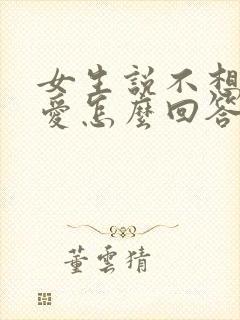 女生説不想
愛怎麼回答
董雲猜